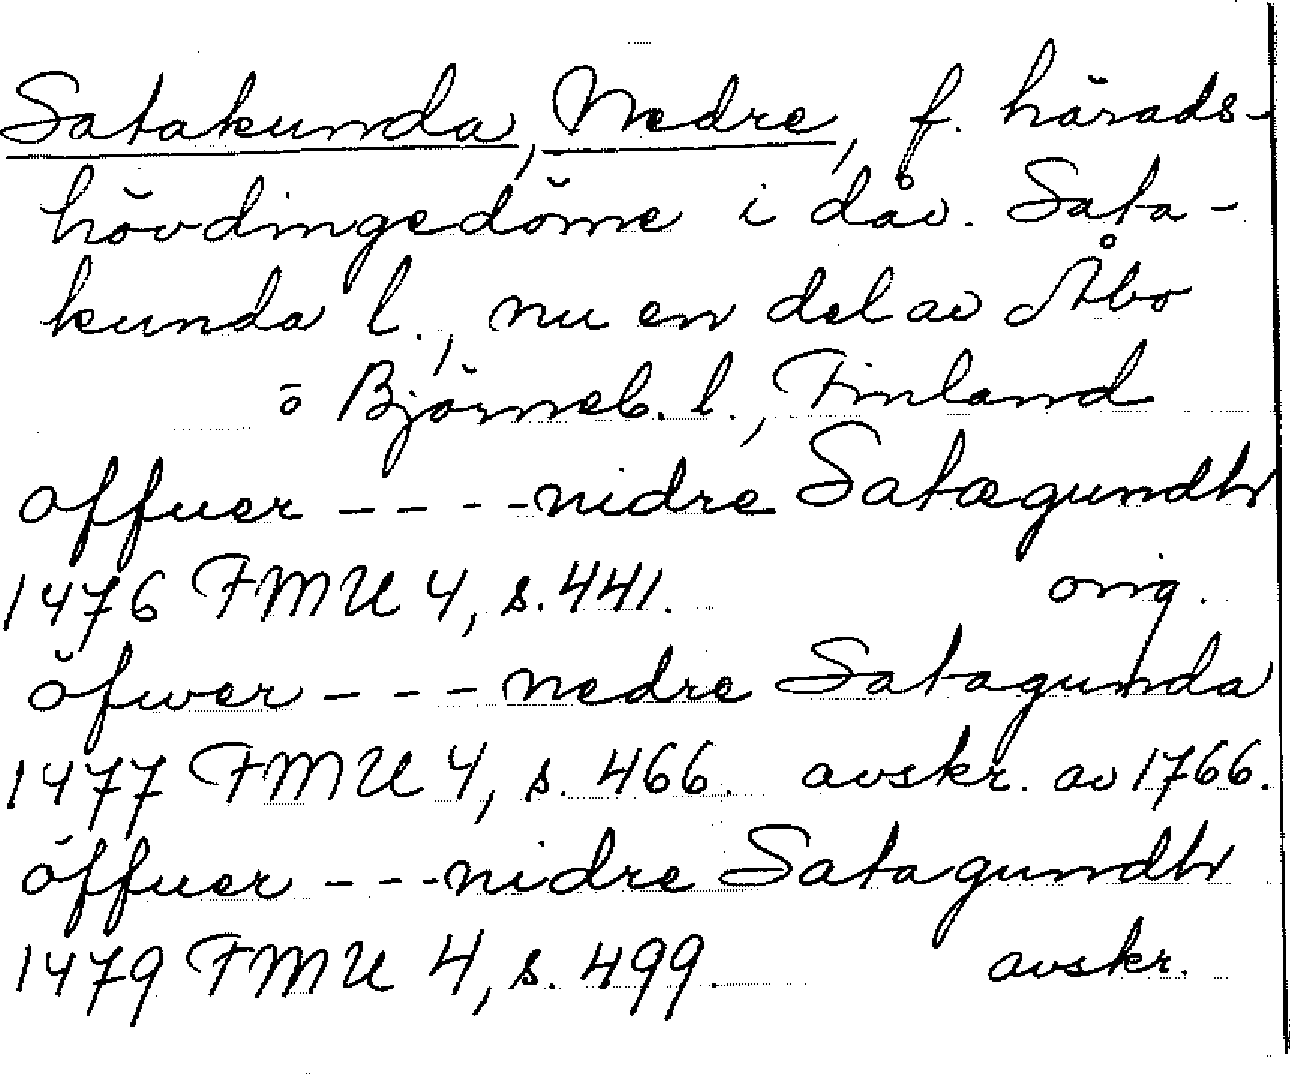 Satakunda, Nedre, f. härads-
hövdingedöme i dåv. Sata-
kunda l., nu en del av Åbo
o Björneb. l., Finland
offuer ---- nidre Satægundh
1476 FMU 4, s. 441. orig.
öfwer --- nedre Satagunda
1477 FMU 4, s. 466. avskr. av 1766.
öffuer --- nidre Satagundh
1479 FMU 4, s. 499. avskr.